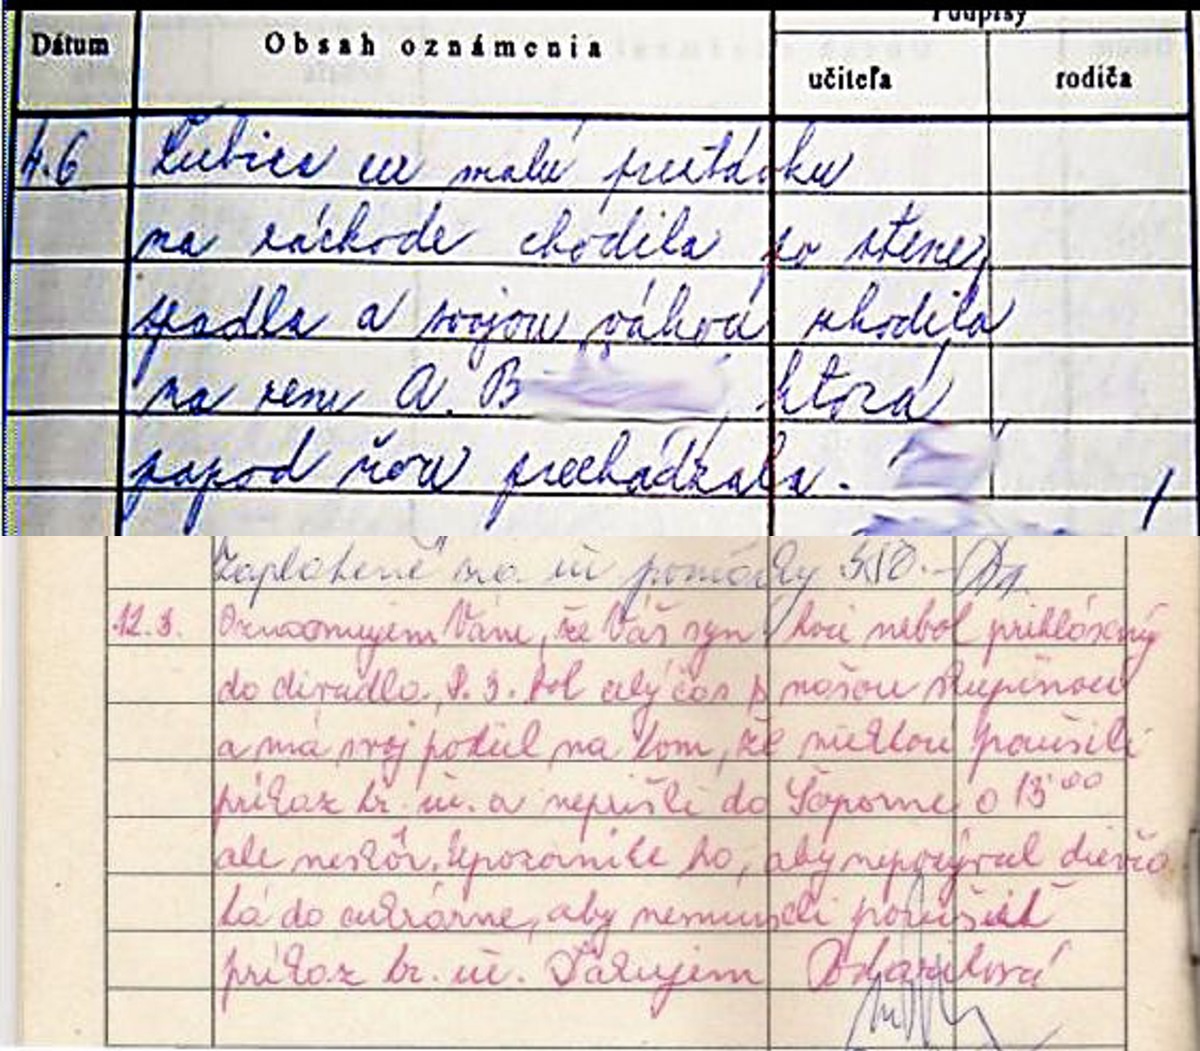 Podpisy
Dátum Obsah oznámenia učiteľa rodiča
4.6 Ľubica cez malú prestávku
na záchode chodila po stene,
spadla a svojou váhou zhodila
na zem A. B , ktorá
popod ňou prechádzala.
Zaplatené na uč. pomôcky 350.-
12.3. Oznamujem Vám, že Váš syn, hoci nebol prihlásený
do divadla, 8.3. bol celý čas s našou skupinou
a má svoj podiel na tom, že niektorí porušili
príkaz tr. uč. a neprišli do Šaporne o 13 00
ale neskôr. Upozornite ho, aby nepozýval dievča
tá do cukrárne, aby nemuseli porušiť
príkaz tr. uč. Ďakujem